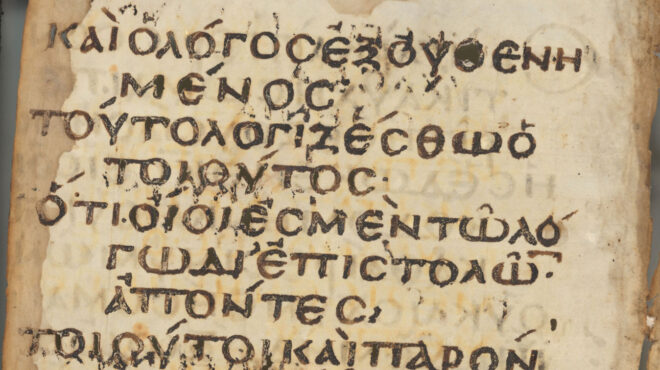 ΚΑῚΟΛΌΓΟϹἘΞΟΥΘΕΝΗ
ΜΈΝΟϹ·
ΤΟΥ͂ΤΟΛΟΓΙΖΈϹΘΩὉ
ΤΟΙΟΥ͂ΤΟϹ·
ὍΤΙ·ΟἹΟΊἘϹΜΕΝΤΩ͂ΛΌ
ΓΩΔΙ’ἘΠΙϹΤΟΛΩ͂·
ἈΠΌΝΤΕϹ,
ΤΟΙΟΥ͂ΤΟΙΚΑῚΠΑΡΌΝ